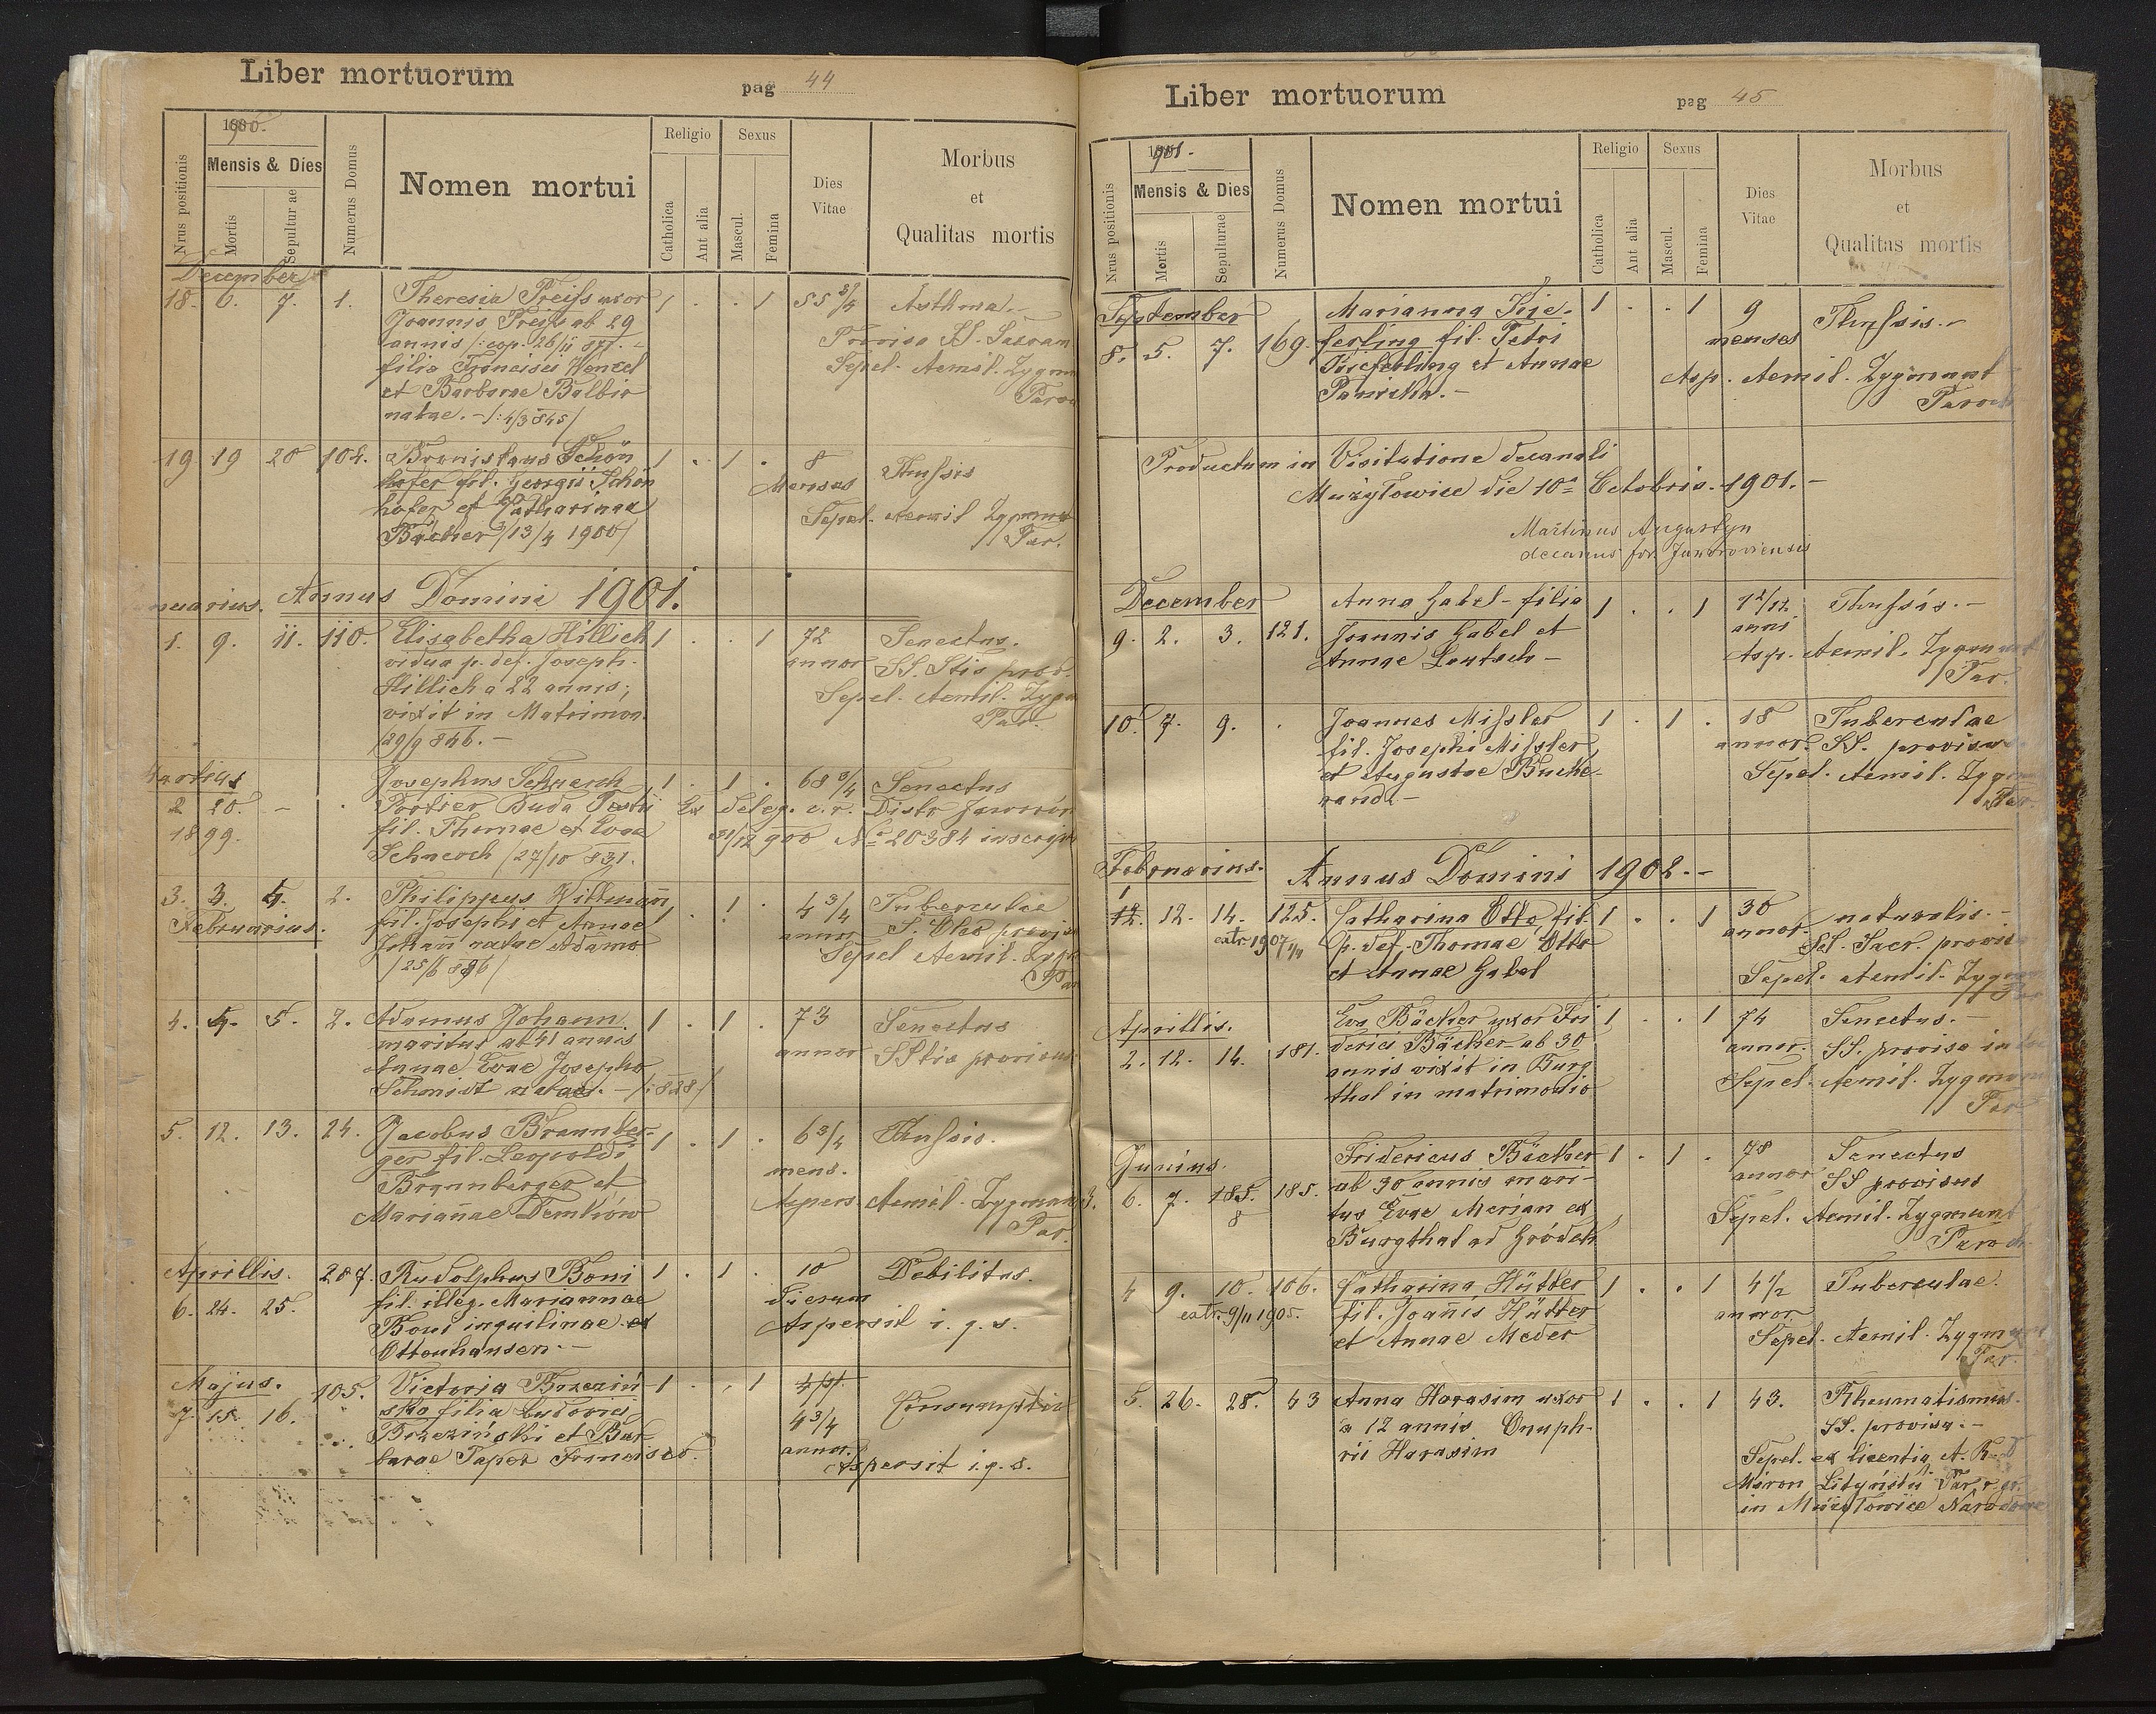 Liber mortuorum pag 44
1900.
Nrus positionis
Mensis & Dies
Mortis
Sepultur ae
Numerus Domus
Nomen mortui
Religio
Catholica
Ant alia
Sexus
Mascul.
Femina
Dies Vitae
Morbus
et
Qualitas mortis
December
18. 6. 7. 1. Theresia Preiss uxor 1 . . 1 55 3/4 Asthma.
Joannis Preiss ab 29
annis /:cop. 26/11 871.
Provisa SS. Sacram
filia Francisci Wenzel
Sepel. Aemil. Zygmu
et Barbarae Balbir
Paroc
natae. - /:4/3 845/
19 19 20 102. Bronislaus Schön 1 . 1 . 8 Thussis
hofer fil. Georgii Schön Menses
hofer et Catharinae
Sepel. Aemil Zygmun
Bächer /13/4 1900/
Par.
Annus Domini 1901.
nuarius.
1. 9. 11. 110. Elisabetha Hillich 1 . . 1 72 Senectus.
vidua p. def. Joseph. annor SS. Stis prov.
Hillich a 22 annis;
Sepel. Aemil. Zygm
vixit in Matrimon.
Par.
/29/9 846. -
Martius
Josephus Schnerch 1 . 1 . 68 3/4 Senectus
2 20. - . Portier Buda Pesth Ex deleg. c. r. Distr Jaworów
1899. fil. Thomae et Evae 31/12 900 No 20384 inscrip
Schnerch /27/10 831.
3. 3. 4. 2. Philippus Willmañ, 1 . 1 . 4 3/4 Tuberculae
Februarius. fil. Josephi et Annae annor S. Oleo provis
Johañ natae Adamo
Sepel Aemil. Zygm
/25/6 896/
Par
4. 4. 5. 2. Adamus Johann 1 . 1 . 73 Senectus
maritus ab 41 annis annor SStis provisus
Annae Evae Josepho
Schmidt natae. - /:828/
5. 12. 13. 24. Jacobus Braunber- 1 . 1 . 6 3/4 Thussis.
ger fil. Leopoldi mens.
Braunberger et
Aspers. Aemil. Zygmunt
Mariañae Demków
Par.
Aprillis. 207. Rudolphus Boni 1 . 1 . 10 Debilitas.
6. 24. 25. fil. illeg. Mariannae Dierum
Boni inquilinae ex Aspersit i. q. s.
Ottenhausen. -
Majus. 105. Victoria Brzeziń- 1 . . 1
7. 15. 16. ska filia Ludovici 4 3/4 Consumptio
Brzeziński et Bar- annor.
barae Paper Francisco. Aspersit i. q. s.
Liber mortuorum pag 45
1901.
Nrus positionis
Mensis & Dies
Mortis
Sepulturae
Numerus Domus
Nomen mortui
Religio
Catholica
Ant alia
Sexus
Mascul.
Femina
Dies Vitae
Morbus
et
Qualitas mortis
September Marianna Kie- 1 . . 1 9 Thussis. -
8. 5. 7. 169. ferling fil. Petri menses
Kieferling et Annae Asp. Aemil. Zygmunt
Paroch
Productum in Visitatione decanali
Mużyłowice die 10a Octobris. 1901. -
Martinus Augustyn
decanus for. Jaworoviensis
December Anna Gabel - filia 1 . . 1 1 2/12 Thussis. -
9. 2. 3. 121. Joannis Gabel et anni
Annae Lautsch - Asp. Aemil. Zygmunt
Par.
10. 7. 9. . Joannes Missler 1 . 1 . 18 Tuberculae
fil. Josephi Missler annor. SS. provisus
et Augustae Bucke- Sepel. Aemil. Zygm
nandi - Par.
Februarius. Annus Domini 1902. -
1
12. 12. 14. 125. Catharina Otto, fil. 1 . . 1 30 naturalis. -
extr. 1907 p. def. Thomae Otto annor. SS. Sacr. provisa
et Annae Gabel Sepel. Aemil. Zygm
Par
Aprillis. Eva Bächer uxor Fri 1 . . 1 74 Senectus. -
2. 12. 14. 181. derici Bächer ab 30 annor. SS. provisa in
annis vixit in Burg Sepel. Aemil. Zygmunt
thal in matrimonio Par
Junius. Fridericus Bächer 1 . 1 . 78 Senectus
6. 7. 185. 185. ab 30 annis mari- annor SS provisus
8 tus Evae Merjan ex Sepel. Aemil. Zygmunt
Burgthal ad Gródek Paroch
4 9. 10. 106. Catharina Hütter 1 . . 1 4 1/2 Tuberculae.
extr. 9/11 1905. fil. Joañis Hütter annor
et Annae Meder Sepel. Aemil. Zygmunt
Par.
5. 26. 28. 43 Anna Harasim uxor 1 . . 1 43. Rheumatismus.
a 12 annis Onuph- SS. provisa. -
rii Harasim Sepel. ex licentia A. R. D
Miron Par. r. gr.
in Mużyłowice Narodowe